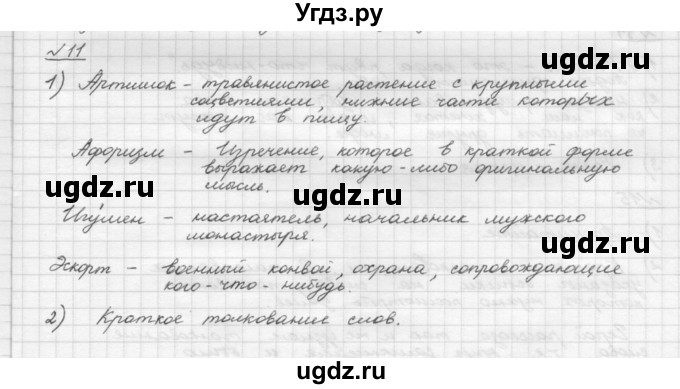 Угдз.ру
№ 11
1) Артишок - травянистое растение с крупными
соцветиями, нижние части которых
идут в пищу.
Афоризм - Изречение, которое в краткой форме
выражает какую-либо оригинальную
мысль.
Игу́мен - настоятель, начальник мужского
монастыря.
Эскорт - военный конвой, охрана, сопровождающие
кого-что-нибудь.
2) Краткое толкование слов.
ugdz.ru
ugdz.ru
ugdz.ru
ugdz.ru
ugdz.ru
ugdz.ru
ugdz.ru
ugdz.ru
ugdz.ru